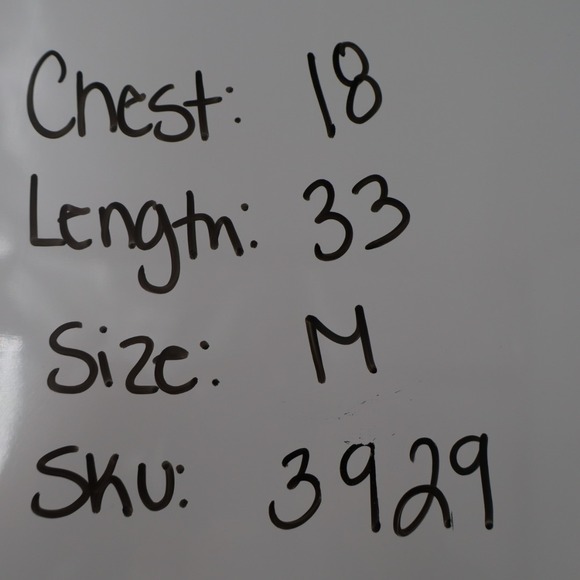 Chest: 18
Length: 33
Size: M
SKU: 3929